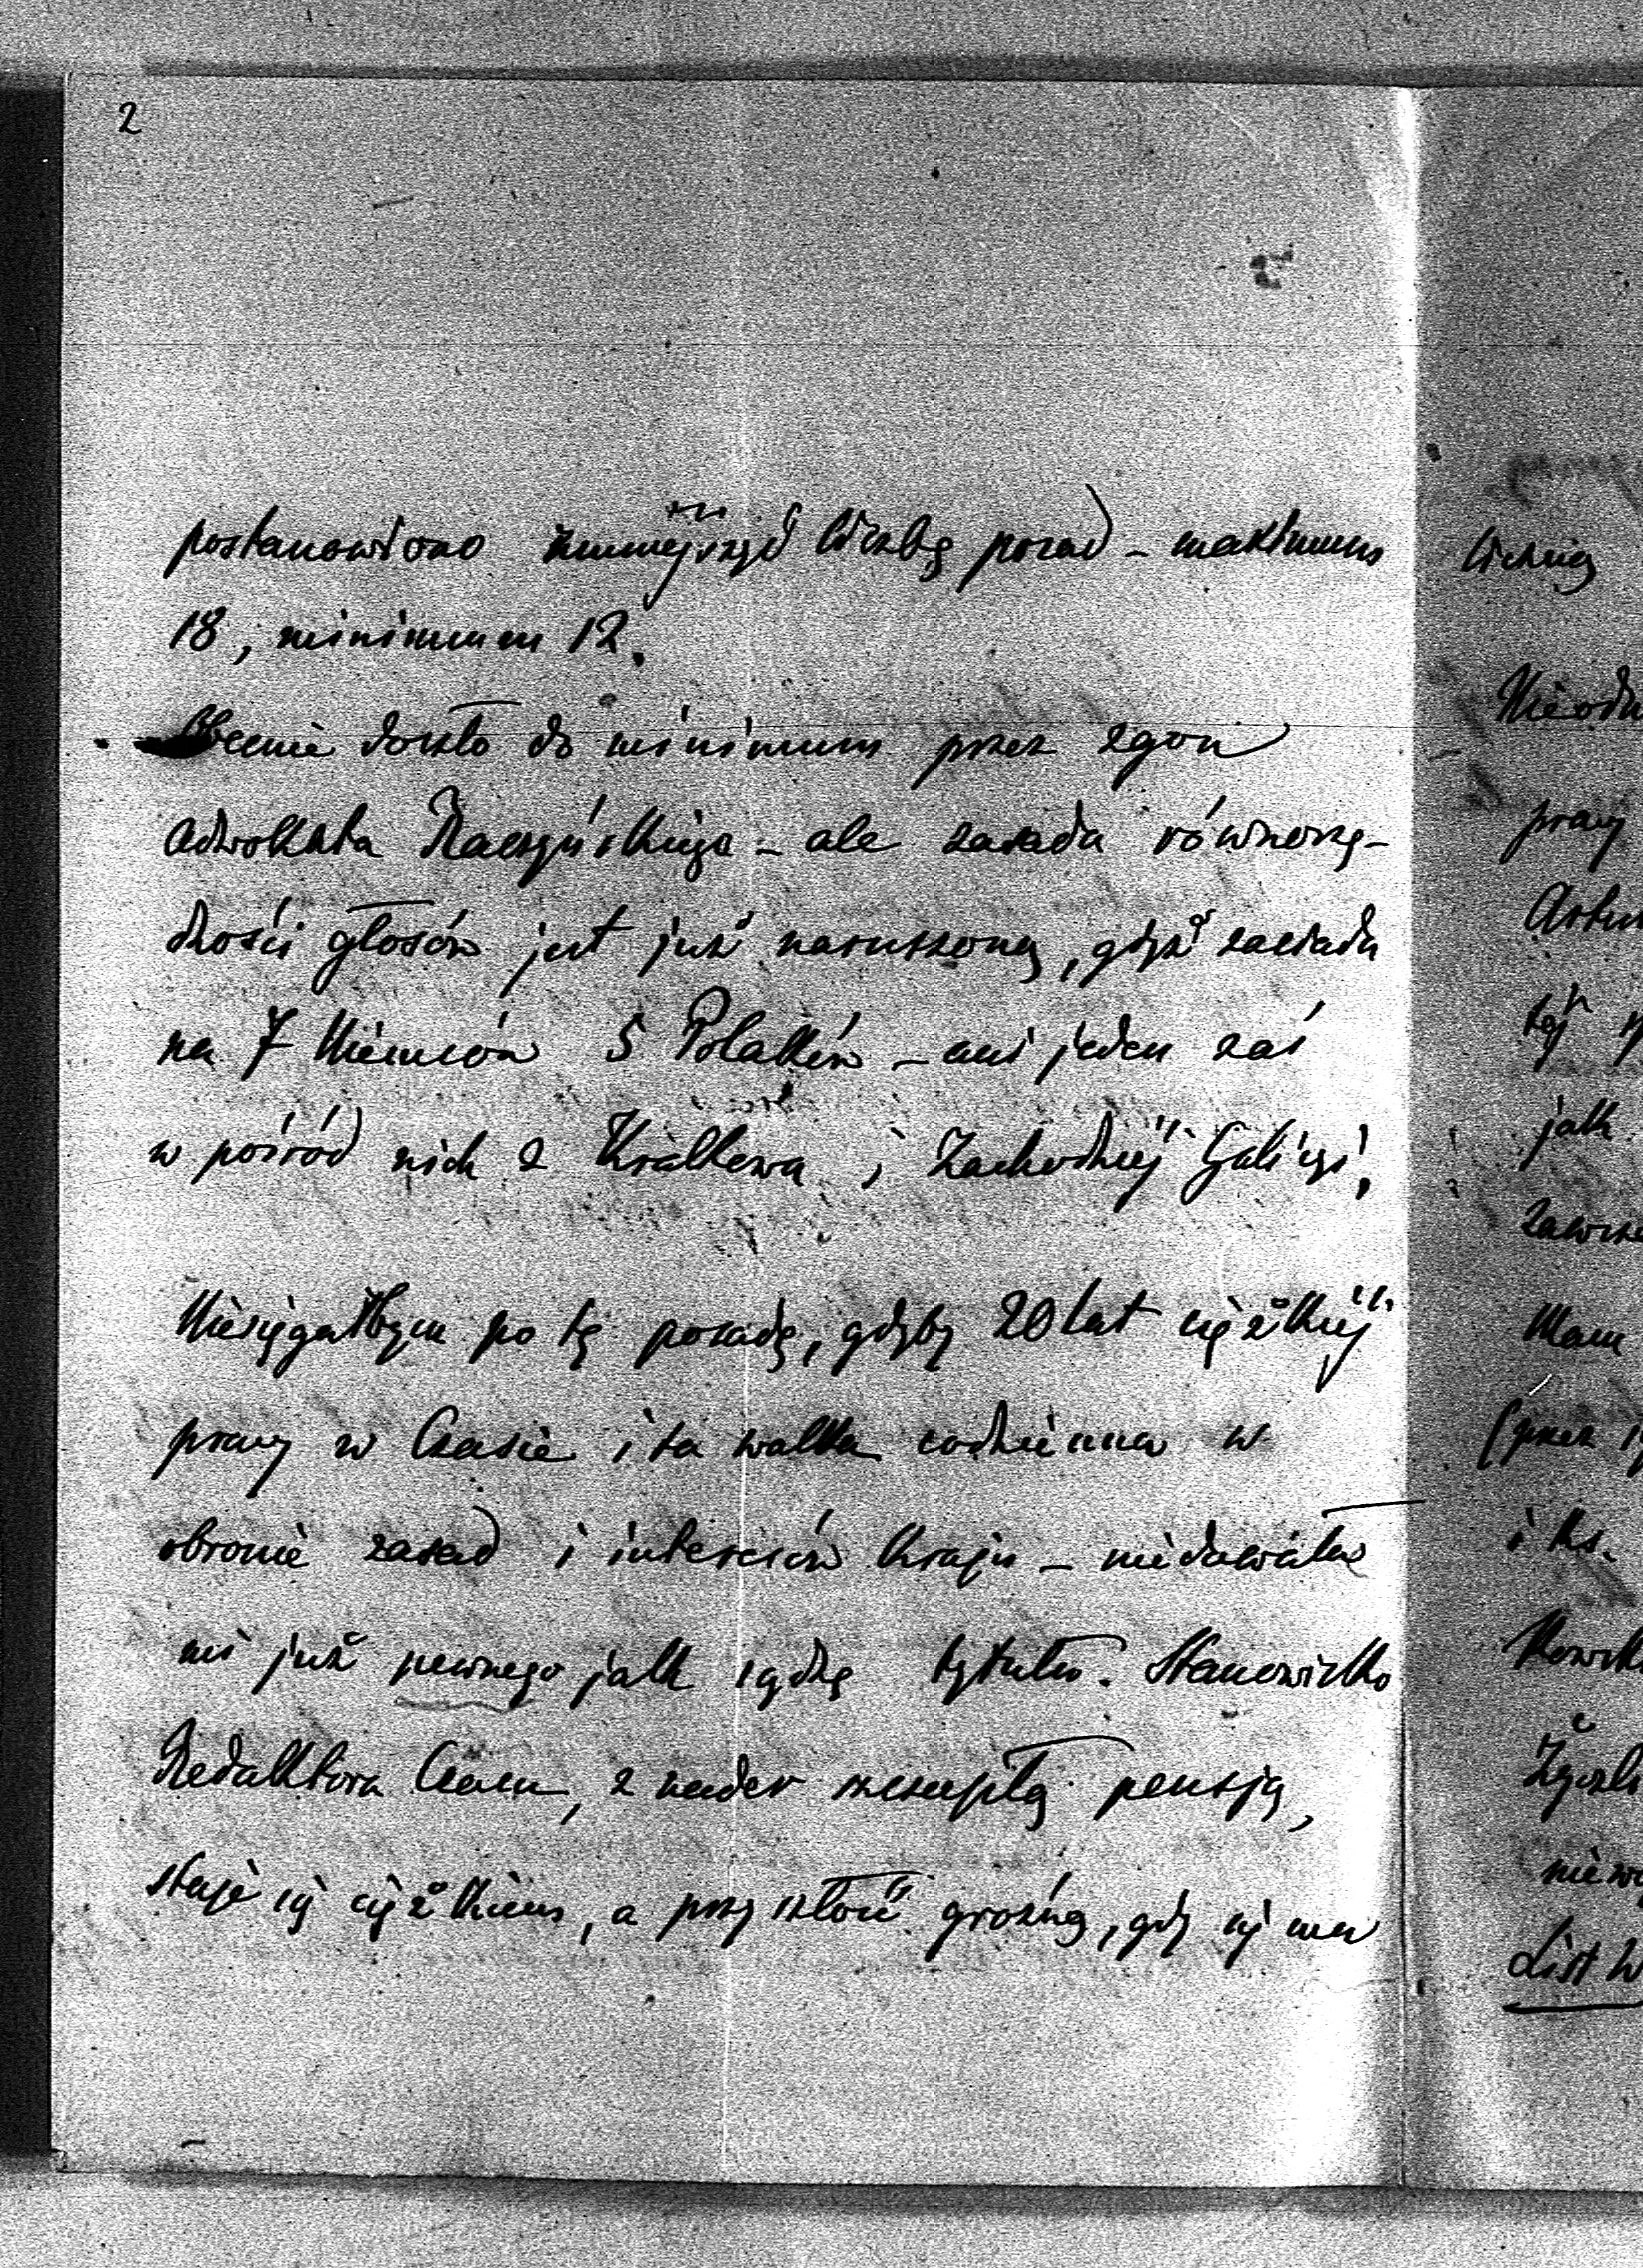 2
postanowiono zmniejszyć liczbę posad – maximum
18, minimum 12.
Obecnie doszło do minimum przez zgon
adwokata Raczyńskiego – ale zasada równorzę-
dności głosów jest już naruszoną, gdyż zasiada
na 7 Niemców 5 Polaków – ani jeden zaś
w pośród nich z Krakowa i Zachodniej Galicyi,
Niesięgałbym po tę posadę, gdyby 20 lat ciężkiej
pracy w Czasie i ta walka codzienna w
obronie zasad i interesów kraju – niedawała
mi już pewnego jak sądzę tytułu. Stanowisko
Redaktora Czasu, z nader szczupłą pensją,
staje się ciężkiem, a przyszłość groźną, gdy się ma
liczną
pracy
tej
jak
Mam
(przez
i ks.
List